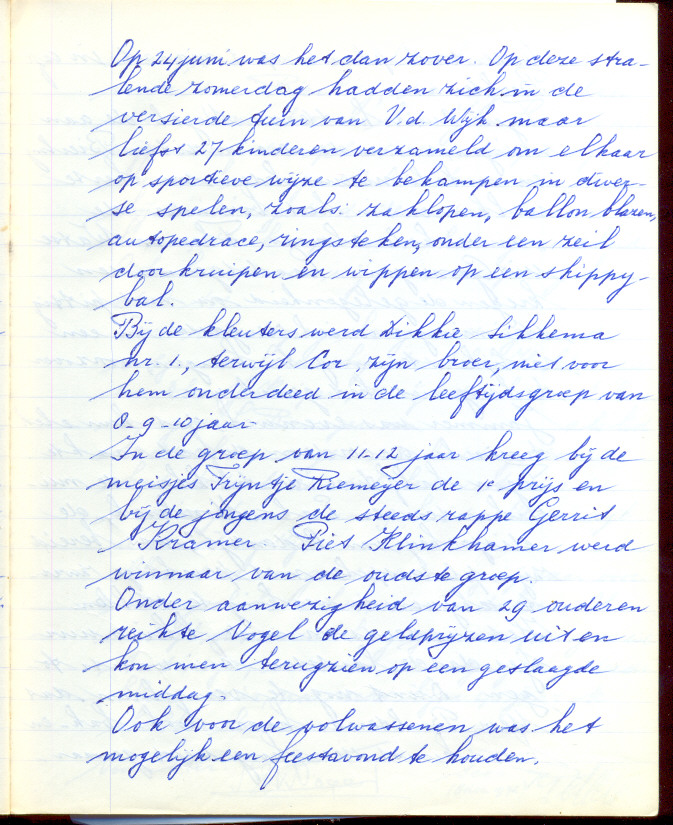 Op 24 juni was het dan zover. Op deze stra-
lende zomerdag hadden zich in de
versierde tuin van V.d. Wijk maar
liefst 27 kinderen verzameld om elkaar
op sportieve wijze te bekampen in diver-
se spelen, zoals: zaklopen, ballon blazen,
autopedrace, ringsteken, onder een zeil
door kruipen en wippen op een skippy-
bal.
Bij de kleuters werd Dikkie Sikkema
nr. 1., terwijl Cor, zijn broer, niet voor
hem onderdeed in de leeftijdsgroep van
8-9-10 jaar.
In de groep van 11-12 jaar kreeg bij de
meisjes Trijntje Riemeijer de 1e prijs en
bij de jongens de steeds rappe Gerrit
Kramer. Piet Klinkhamer werd
winnaar van de oudste groep.
Onder aanwezigheid van 29 ouderen
reikte Vogel de geldprijzen uit en
kon men terugzien op een geslaagde
middag.
Ook voor de volwassenen was het
mogelijk een feestavond te houden.